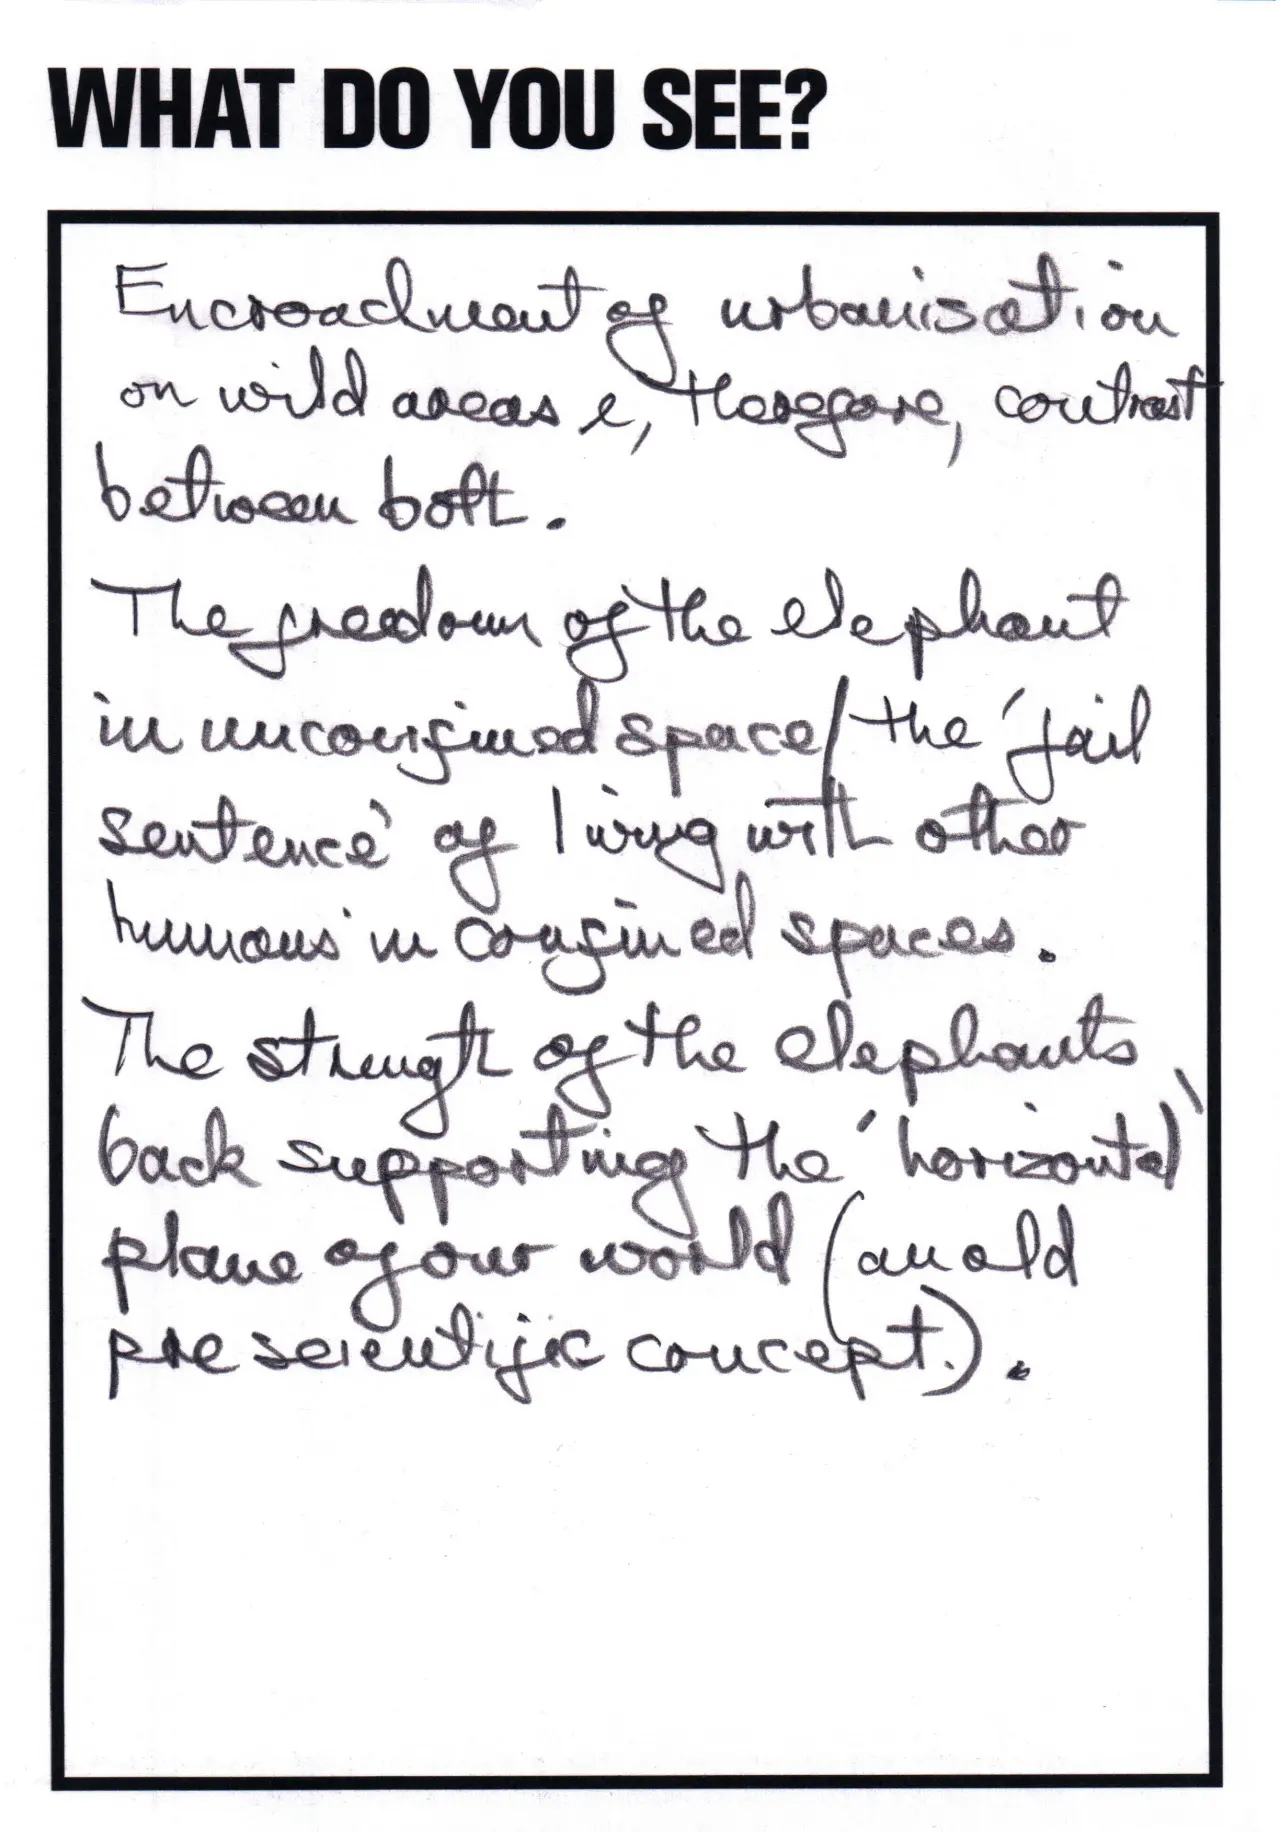 WHAT DO YOU SEE?
Encroachment of urbanisation
on wild areas &, therefore, contrast
between both.
The freedom of the elephant
in unconfined space/the 'jail
sentence' of living with other
humans in confined spaces.
The strength of the elephants
back supporting the 'horizontal'
plane of our world (an old
pre scientific concept.).